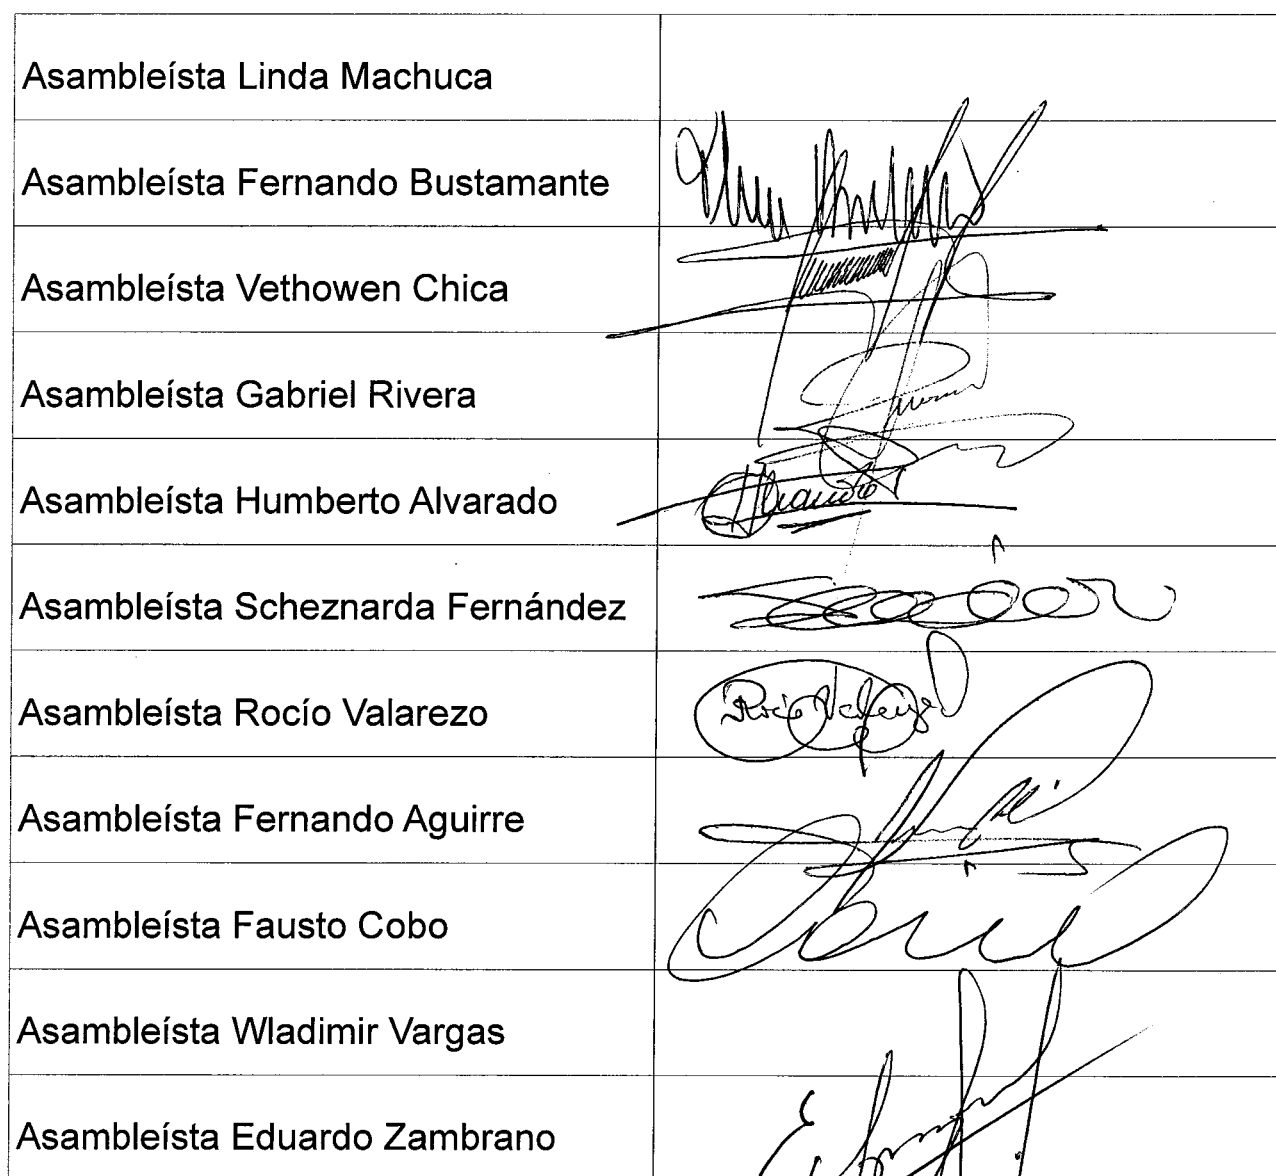 Asambleísta Linda Machuca
Asambleísta Fernando Bustamante
Asambleísta Vethowen Chica
Asambleísta Gabriel Rivera
Asambleísta Humberto Alvarado
Asambleísta Scheznarda Fernández
Asambleísta Rocío Valarezo
Rocío Valarezo
Asambleísta Fernando Aguirre
Asambleísta Fausto Cobo
Asambleísta Wladimir Vargas
Asambleísta Eduardo Zambrano